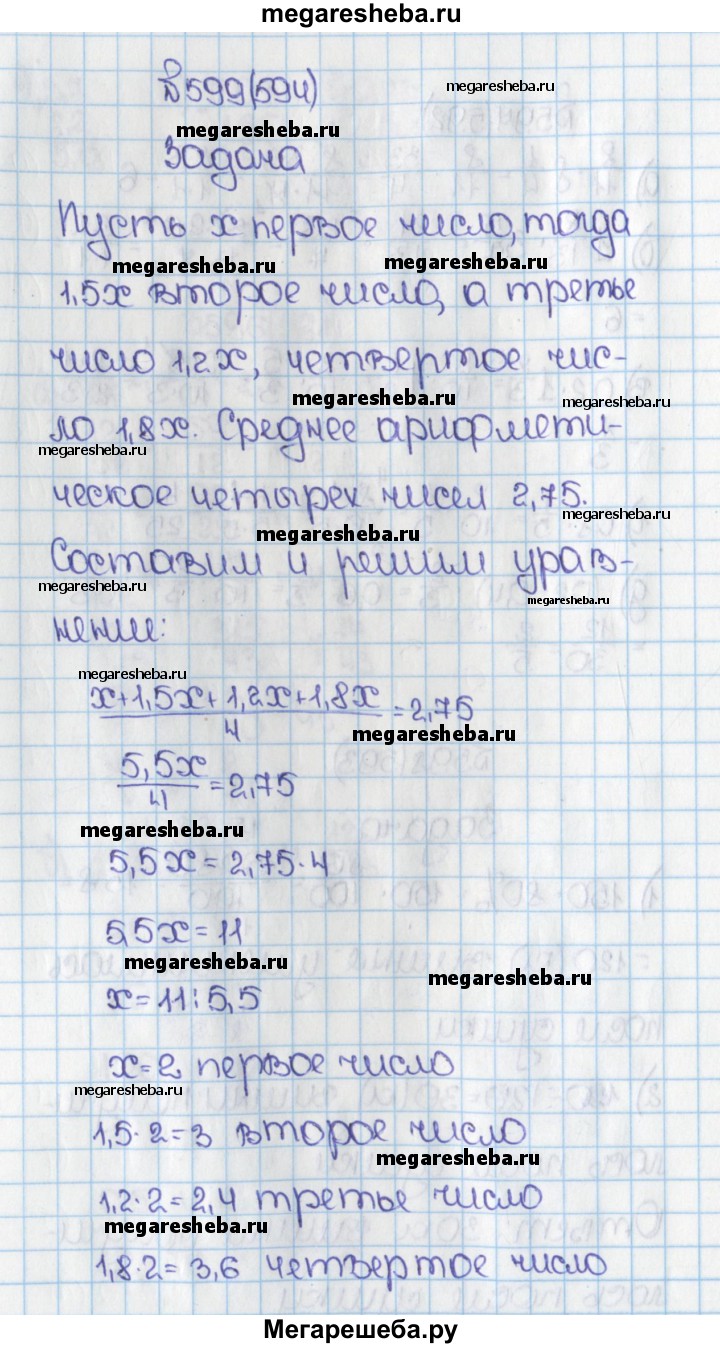 megaresheba.ru
№599(594)
megaresheba.ru
megaresheba.ru
Задача
Пусть x первое число, тогда
megaresheba.ru
megaresheba.ru
1,5x второе число, а третье
число 1,2x, четвертое чис-
megaresheba.ru
megaresheba.ru
ло 1,8x. Среднее арифмети-
megaresheba.ru
ческое четырех чисел 2,75.
megaresheba.ru
megaresheba.ru
Составим и решим урав-
megaresheba.ru
megaresheba.ru
нение:
megaresheba.ru
x+1,5x+1,2x+1,8x/4=2,75
megaresheba.ru
5,5x/4=2,75
megaresheba.ru
5,5x=2,75·4
5,5x=11
megaresheba.ru
megaresheba.ru
x=11:5,5
x=2 первое число
megaresheba.ru
1,5·2=3 второе число
megaresheba.ru
1,2·2=2,4 третье число
megaresheba.ru
1,8·2=3,6 четвертое число
Мегарешеба.ру